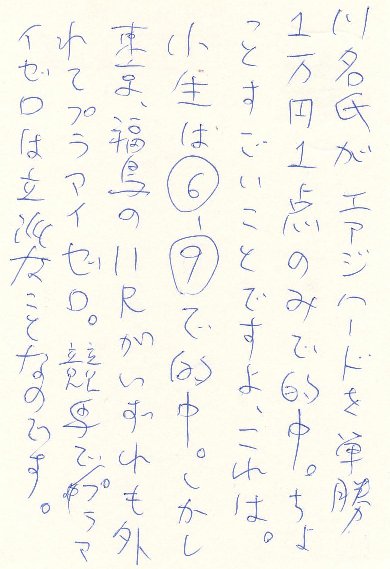 川名氏がエアジハードを単勝
1万円1点のみで的中。ちょ
っとすごいことですよ、これは。
小生は⑥-⑨で的中。しかし
東京、福島の11Rがいずれも外
れてプラマイゼロ。競馬でプラマ
イゼロは立派なことなのです。